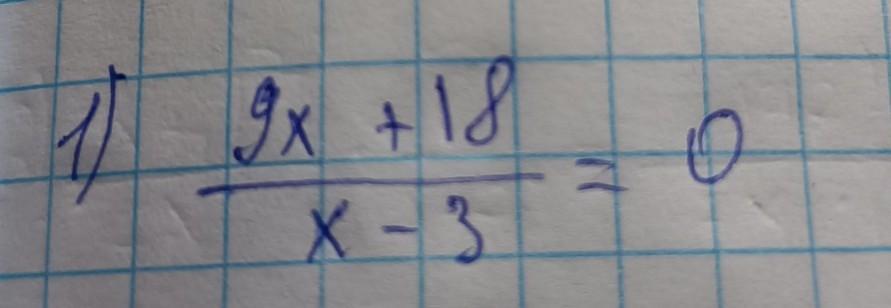 1) 9x + 18
x - 3 = 0